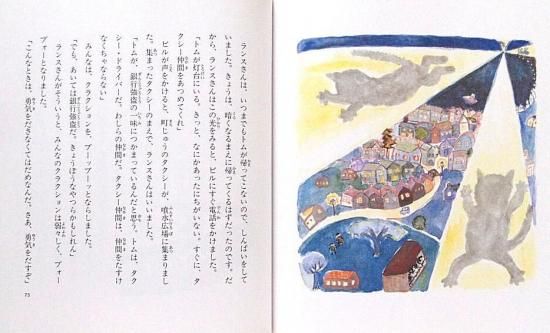 ランスさんは、いつまでもトムが帰ってこないので、しんぱいをして
いました。きょうは、暗くなるまえに帰ってくるはずだったのです。だ
から、ランスさんはこの光をみると、ビルにすぐ電話をかけました。
「トムが灯台にいる。きっと、なにかあったにちがいない。すぐに、タ
クシー仲間をあつめてくれ」
ビルが声をかけると、町じゅうのタクシーが、噴水広場に集まりまし
た。集まったタクシーのまえで、ランスさんはいいました。
「トムが、銀行強盗の一味につかまっているんだと思う。トムは、タク
シー・ドライバーだ。わしらの仲間だ。タクシー仲間は、仲間をたすけ
なくちゃならない」
みんなは、クラクションを、プーッププーッとならしました。
「でも、あいては銀行強盗だ。きょうぼうなやつらかもしれん」
ランスさんがそういうと、みんなのクラクションは弱々しく、プォー
プォーとなりました。
「こんなときは、勇気をださなくてはだめなんだ。さあ、勇気をだすぞ」
73